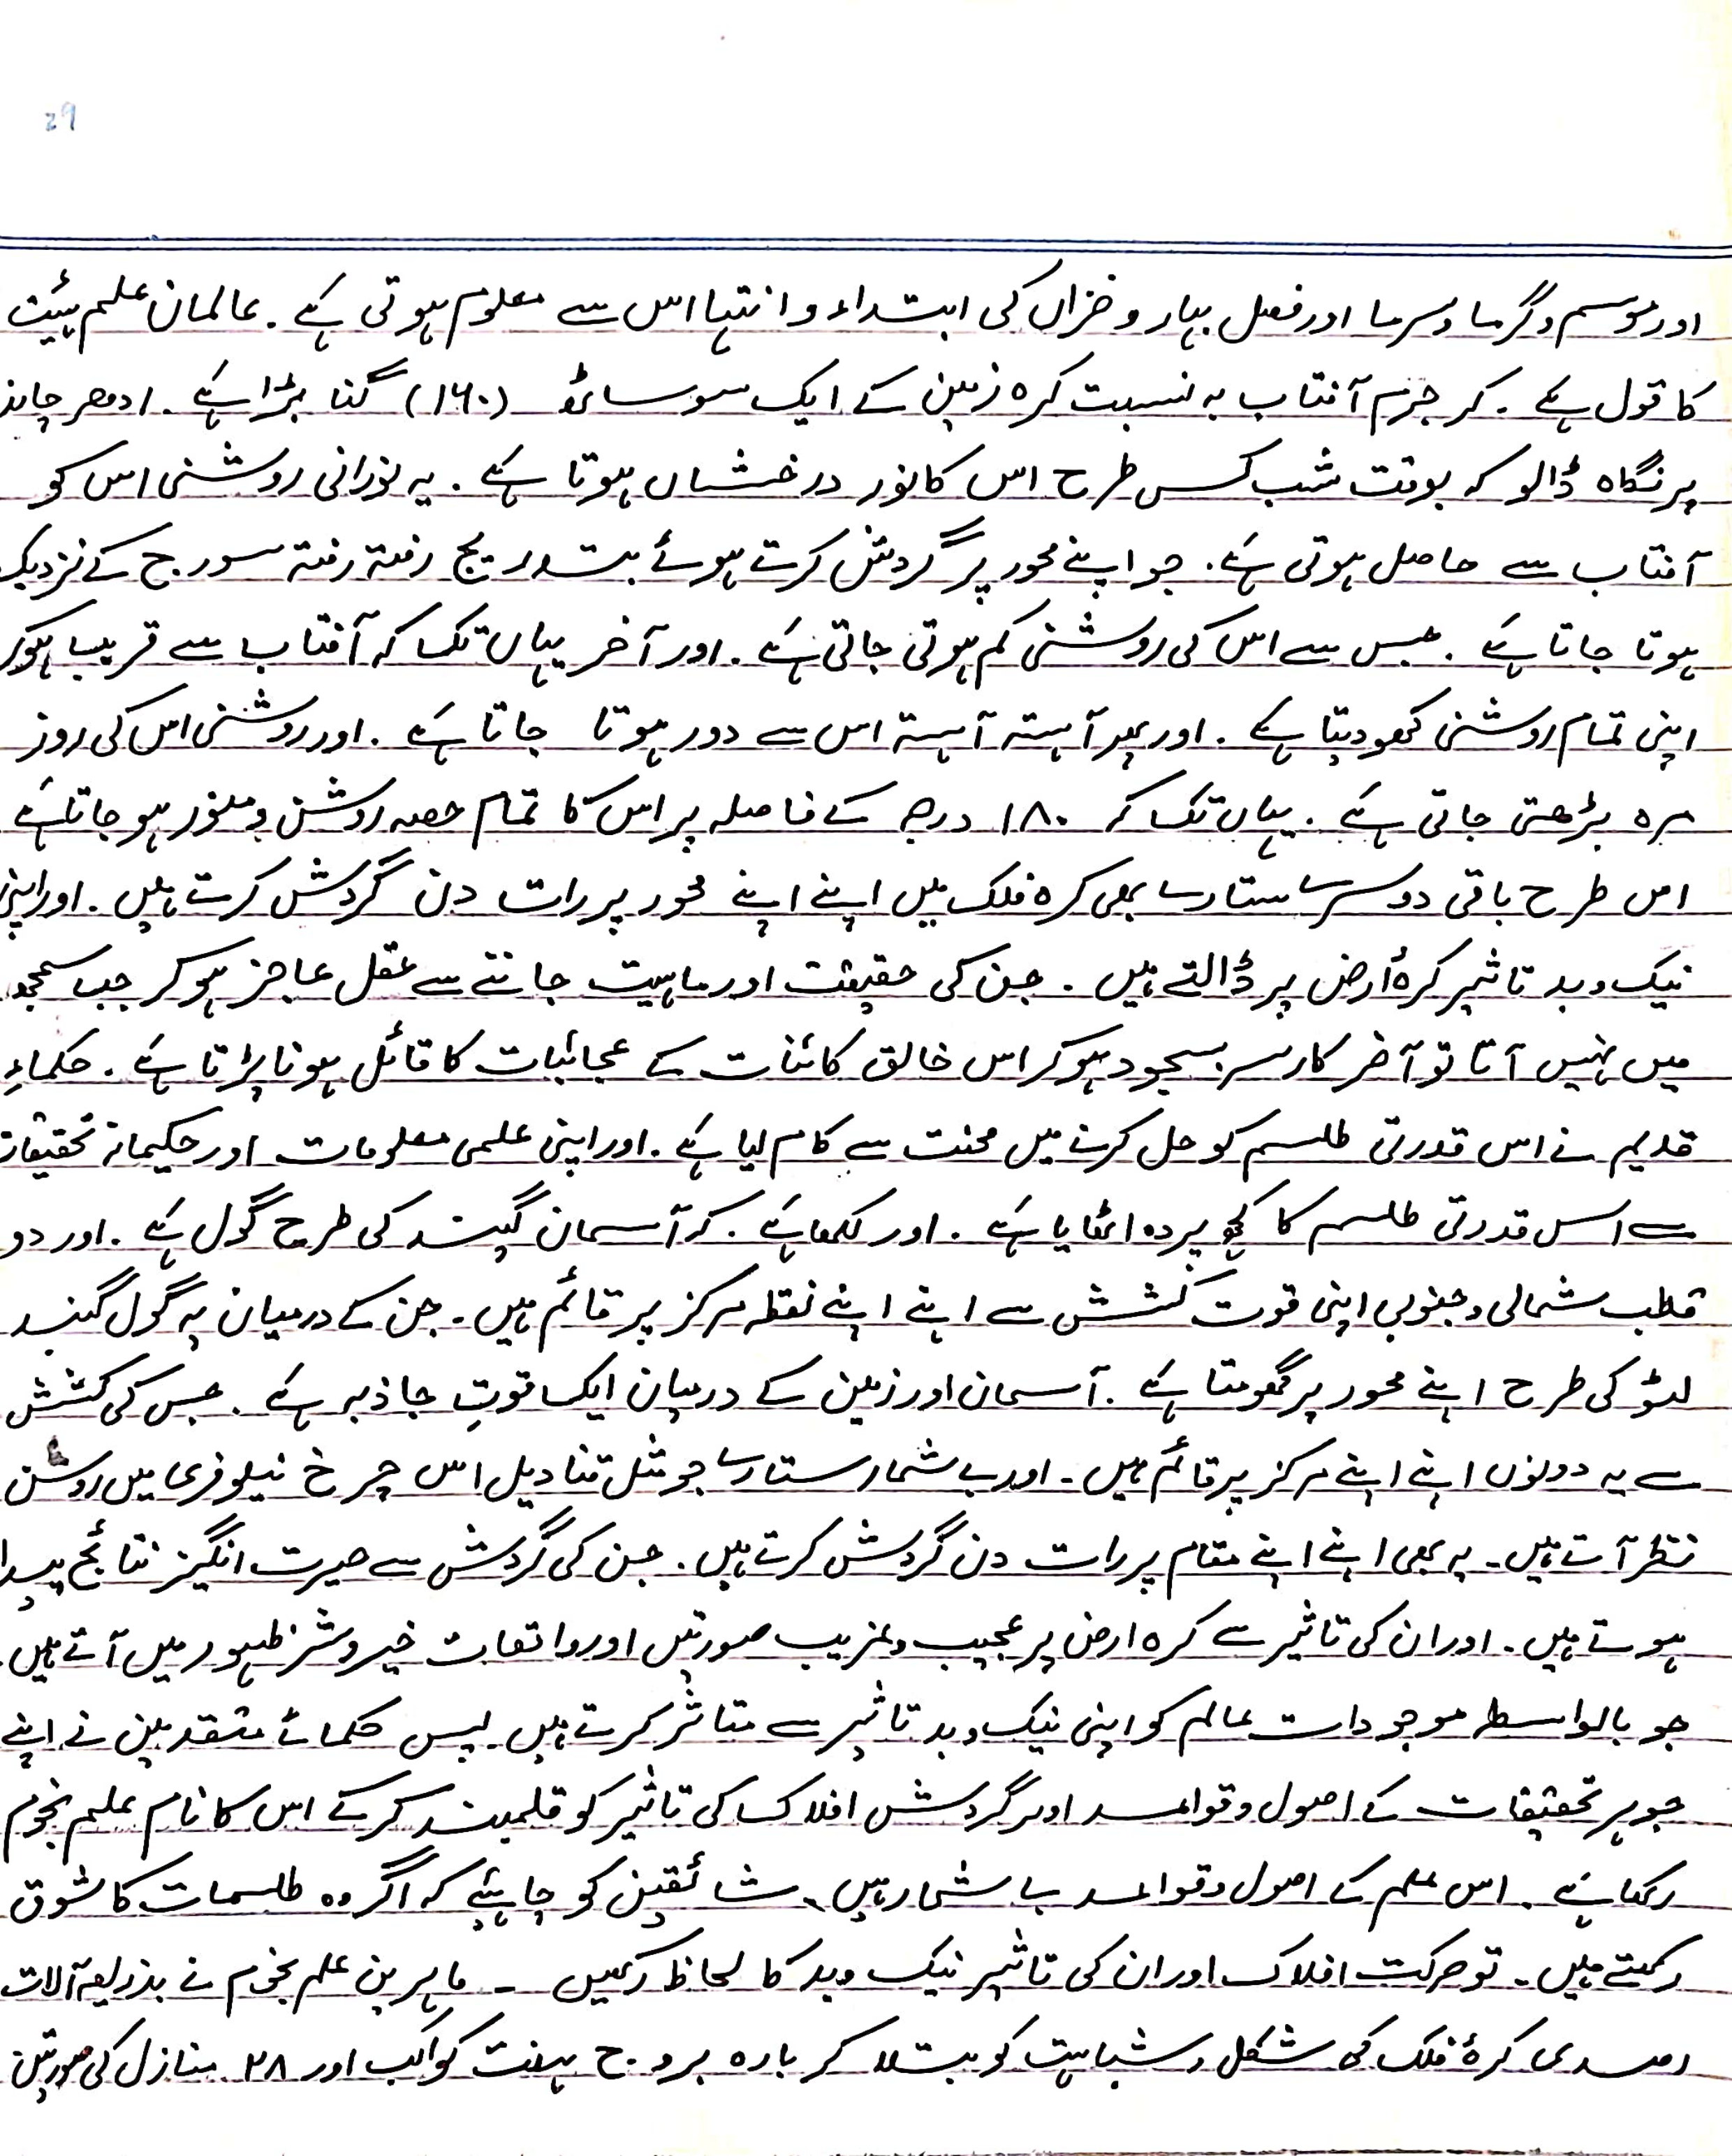 29
اور موسم و گرما و سرما اور فصل بہار و خزاں کی ابتداء و انتہا اس سے معلوم ہوتی ہے ۔ عالمان علم ہیئت
کا قول ہے ۔ کہ جرم آفتاب بہ نسبت کرہ زمین کے ایک سو ساٹھ (۱۶۰) گنا بڑا ہے ۔ ادھر چاند
پر نگاہ ڈالو کہ بوقت شب کس طرح اس کا نور درخشاں ہوتا ہے ۔ یہ نورانی روشنی اس کو
آفتاب سے حاصل ہوتی ہے ۔ جو اپنے محور پر گردش کرتے ہوئے بتدریج رفتہ رفتہ سورج کے نزدیک
ہوتا جاتا ہے ۔ جس سے اس کی روشنی کم ہوتی جاتی ہے ۔ اور آخر یہاں تک کہ آفتاب سے قریب ہو کر
اپنی تمام روشنی کھو دیتا ہے ۔ اور پھر آہستہ آہستہ اس سے دور ہوتا جاتا ہے ۔ اور روشنی اس کی روز
مرہ بڑھتی جاتی ہے ۔ یہاں تک کہ ۱۸۰ درجہ کے فاصلہ پر اس کا تمام حصہ روشن و منور ہو جاتا ہے
اس طرح باقی دوسرے ستارے بھی کرہ فلک میں اپنے اپنے محور پر رات دن گردش کرتے ہیں ۔ اور اپنی
نیک و بد تاثیر کرۂ ارض پر ڈالتے ہیں ۔ جن کی حقیقت اور ماہیت جاننے سے عقل عاجز ہو کر جب سمجھ
میں نہیں آتا تو آخر کار سر بسجود ہو کر اس خالق کائنات کے عجائبات کا قائل ہونا پڑتا ہے ۔ حکماءِ
قدیم نے اس قدرتی طلسم کو حل کرنے میں محنت سے کام لیا ہے ۔ اور اپنی علمی معلومات اور حکیمانہ تحقیقات
سے اس قدرتی طلسم کا کچھ پردہ اٹھایا ہے ۔ اور لکھا ہے ۔ کہ آسمان گیند کی طرح گول ہے ۔ اور دو
قطب شمالی و جنوبی اپنی قوت کشش سے اپنے اپنے نقطہ مرکز پر قائم ہیں ۔ جن کے درمیان یہ گول گنبد
لٹو کی طرح اپنے محور پر گھومتا ہے ۔ آسمان اور زمین کے درمیان ایک قوتِ جاذبہ ہے ۔ جس کی کشش
سے یہ دونوں اپنے اپنے مرکز پر قائم ہیں ۔ اور بے شمار ستارے جو مثل قنادیل اس چرخ نیلوفری میں روشن
نظر آتے ہیں ۔ یہ بھی اپنے اپنے مقام پر رات دن گردش کرتے ہیں ۔ جن کی گردش سے حیرت انگیز نتائج پیدا
ہوتے ہیں ۔ اور ان کی تاثیر سے کرہ ارض پر عجیب و غریب صورتیں اور واقعات خیر و شر ظہور میں آتے ہیں
جو بالواسطہ موجودات عالم کو اپنی نیک و بد تاثیر سے متاثر کرتے ہیں ۔ پس حکمائے متقدمین نے اپنے
جوہر تحقیقات کے اصول و قواعد اور گردش افلاک کی تاثیر کو قلمبند کر کے اس کا نام علم نجوم
رکھا ہے ۔ اس علم کے اصول و قواعد بے شمار ہیں ۔ شائقین کو چاہئے کہ اگر وہ طلسمات کا شوق
رکھتے ہیں ۔ تو حرکت افلاک اور ان کی تاثیر نیک و بد کا لحاظ رکھیں ۔ ماہرین علم نجوم نے بذریعہ آلات
رصدی کرۂ فلک کی شکل و شباہت کو بتلا کر بارہ بروج ہفت کواکب اور ۲۸ منازل کی صورتیں